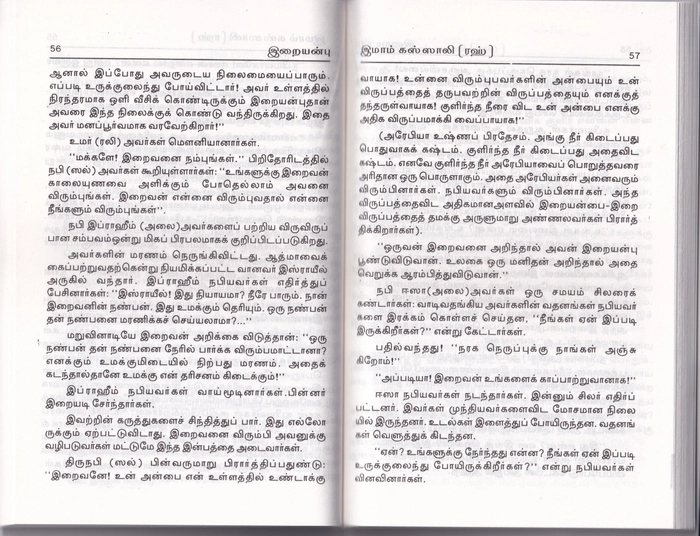 56 இறையன்பு
ஆனால் இப்போது அவருடைய நிலைமையைப்பாரும்.
எப்படி உருக்குலைந்து போய்விட்டார்! அவர் உள்ளத்தில்
நிரந்தரமாக ஒளி வீசிக் கொண்டிருக்கும் இறையன்புதான்
அவரை இந்த நிலைக்குக் கொண்டு வந்திருக்கிறது. இதை
அவர் மனப்பூர்வமாக வரவேற்கிறார்!''
உமர் (ரலி) அவர்கள் மௌனியானார்கள்.
''மக்களே! இறைவனை நம்புங்கள்.'' பிறிதோரிடத்தில்
நபி (ஸல்) அவர்கள் கூறியுள்ளார்கள்: ''உங்களுக்கு இறைவன்
காலையுணவை அளிக்கும் போதெல்லாம் அவனை
விரும்புங்கள். இறைவன் என்னை விரும்புவதால் என்னை
நீங்களும் விரும்புங்கள்''.
நபி இப்ராஹீம் (அலை)அவர்களைப் பற்றிய விருவிருப்
பான சம்பவம்ஒன்று மிகப் பிரபலமாகக் குறிப்பிடப்படுகிறது.
அவர்களின் மரணம் நெருங்கிவிட்டது. ஆத்மாவைக்
கைப்பற்றுவதற்கென்று நியமிக்கப்பட்ட வானவர் இஸ்ராயீல்
அருகில் வந்தார். இப்ராஹீம் நபியவர்கள் எதிர்த்துப்
பேசினார்கள்: ''இஸ்ராயீல்! இது நியாயமா? நீரே பாரும். நான்
இறைவனின் நண்பன். இது உமக்கும் தெரியும். ஒரு நண்பன்
தன் நண்பனை மரணிக்கச் செய்யலாமா?...''
மறுவினாடியே இறைவன் அறிக்கை விடுத்தான்: ''ஒரு
நண்பன் தன் நண்பனை நேரில் பார்க்க விரும்பமாட்டானா?
எனக்கும் உமக்குமிடையில் நிற்பது மரணம். அதைக்
கடந்தால்தானே உமக்கு என் தரிசனம் கிடைக்கும்!''
இப்ராஹீம் நபியவர்கள் வாய்மூடினார்கள்.பின்னர்
இறையடி சேர்ந்தார்கள்.
இவற்றின் கருத்துகளைச் சிந்தித்துப் பார். இது எல்லோ
ருக்கும் ஏற்பட்டுவிடாது. இறைவனை விரும்பி அவனுக்கு
வழிபடுவர்கள் மட்டுமே இந்த இன்பத்தை அடைவார்கள்.
திருநபி (ஸல்) பின்வருமாறு பிரார்த்திப்பதுண்டு:
''இறைவனே! உன் அன்பை என் உள்ளத்தில் உண்டாக்கு
இமாம் கஸ்ஸாலி (ரஹ்) 57
வாயாக! உன்னை விரும்புபவர்களின் அன்பையும் உன்
விருப்பத்தைத் தருபவற்றின் விருப்பத்தையும் எனக்குத்
தந்தருள்வாயாக! குளிர்ந்த நீரை விட உன் அன்பை எனக்கு
அதிக விருப்பமாக்கி வைப்பாயாக!''
(அரேபியா உஷ்ணப் பிரதேசம். அங்கு நீர் கிடைப்பது
பொதுவாகக் கஷ்டம். குளிர்ந்த நீர் கிடைப்பது அதைவிட
கஷ்டம். எனவே குளிர்ந்த நீர் அரேபியாவைப் பொறுத்தவரை
அரிதான ஒரு பொருளாகும். அதை அரேபியர்கள் அனைவரும்
விரும்பினார்கள். நபியவர்களும் விரும்பினார்கள். அந்த
விருப்பத்தைவிட அதிகமானஅளவில் இறையன்பை-இறை
விருப்பத்தைத் தமக்கு அருளுமாறு அண்ணலவர்கள் பிரார்த்
திக்கிறார்கள்).
''ஒருவன் இறைவனை அறிந்தால் அவன் இறையன்பு
பூண்டுவிடுவான். உலகை ஒரு மனிதன் அறிந்தால் அதை
வெறுக்க ஆரம்பித்துவிடுவான்.''
நபி ஈஸா(அலை)அவர்கள் ஒரு சமயம் சிலரைக்
கண்டார்கள்: வாடிவதங்கிய அவர்களின் வதனங்கள் நபியவர்
களை இரக்கம் கொள்ளச் செய்தன. ''நீங்கள் ஏன் இப்படி
இருக்கிறீர்கள்?'' என்று கேட்டார்கள்.
பதில்வந்தது! ''நரக நெருப்புக்கு நாங்கள் அஞ்சு
கிறோம்!''
''அப்படியா! இறைவன் உங்களைக் காப்பாற்றுவானாக!''
ஈஸா நபியவர்கள் நடந்தார்கள். இன்னும் சிலர் எதிர்ப்
பட்டனர். இவர்கள் முந்தியவர்களைவிட மோசமான நிலை
யில் இருந்தனர். உடல்கள் இளைத்துப் போயிருந்தன. வதனங்
கள் வெளுத்துக் கிடந்தன.
''ஏன்? உங்களுக்கு நேர்ந்தது என்ன? நீங்கள் ஏன் இப்படி
உருக்குலைந்து போயிருக்கிறீர்கள்?'' என்று நபியவர்கள்
வினவினார்கள்.